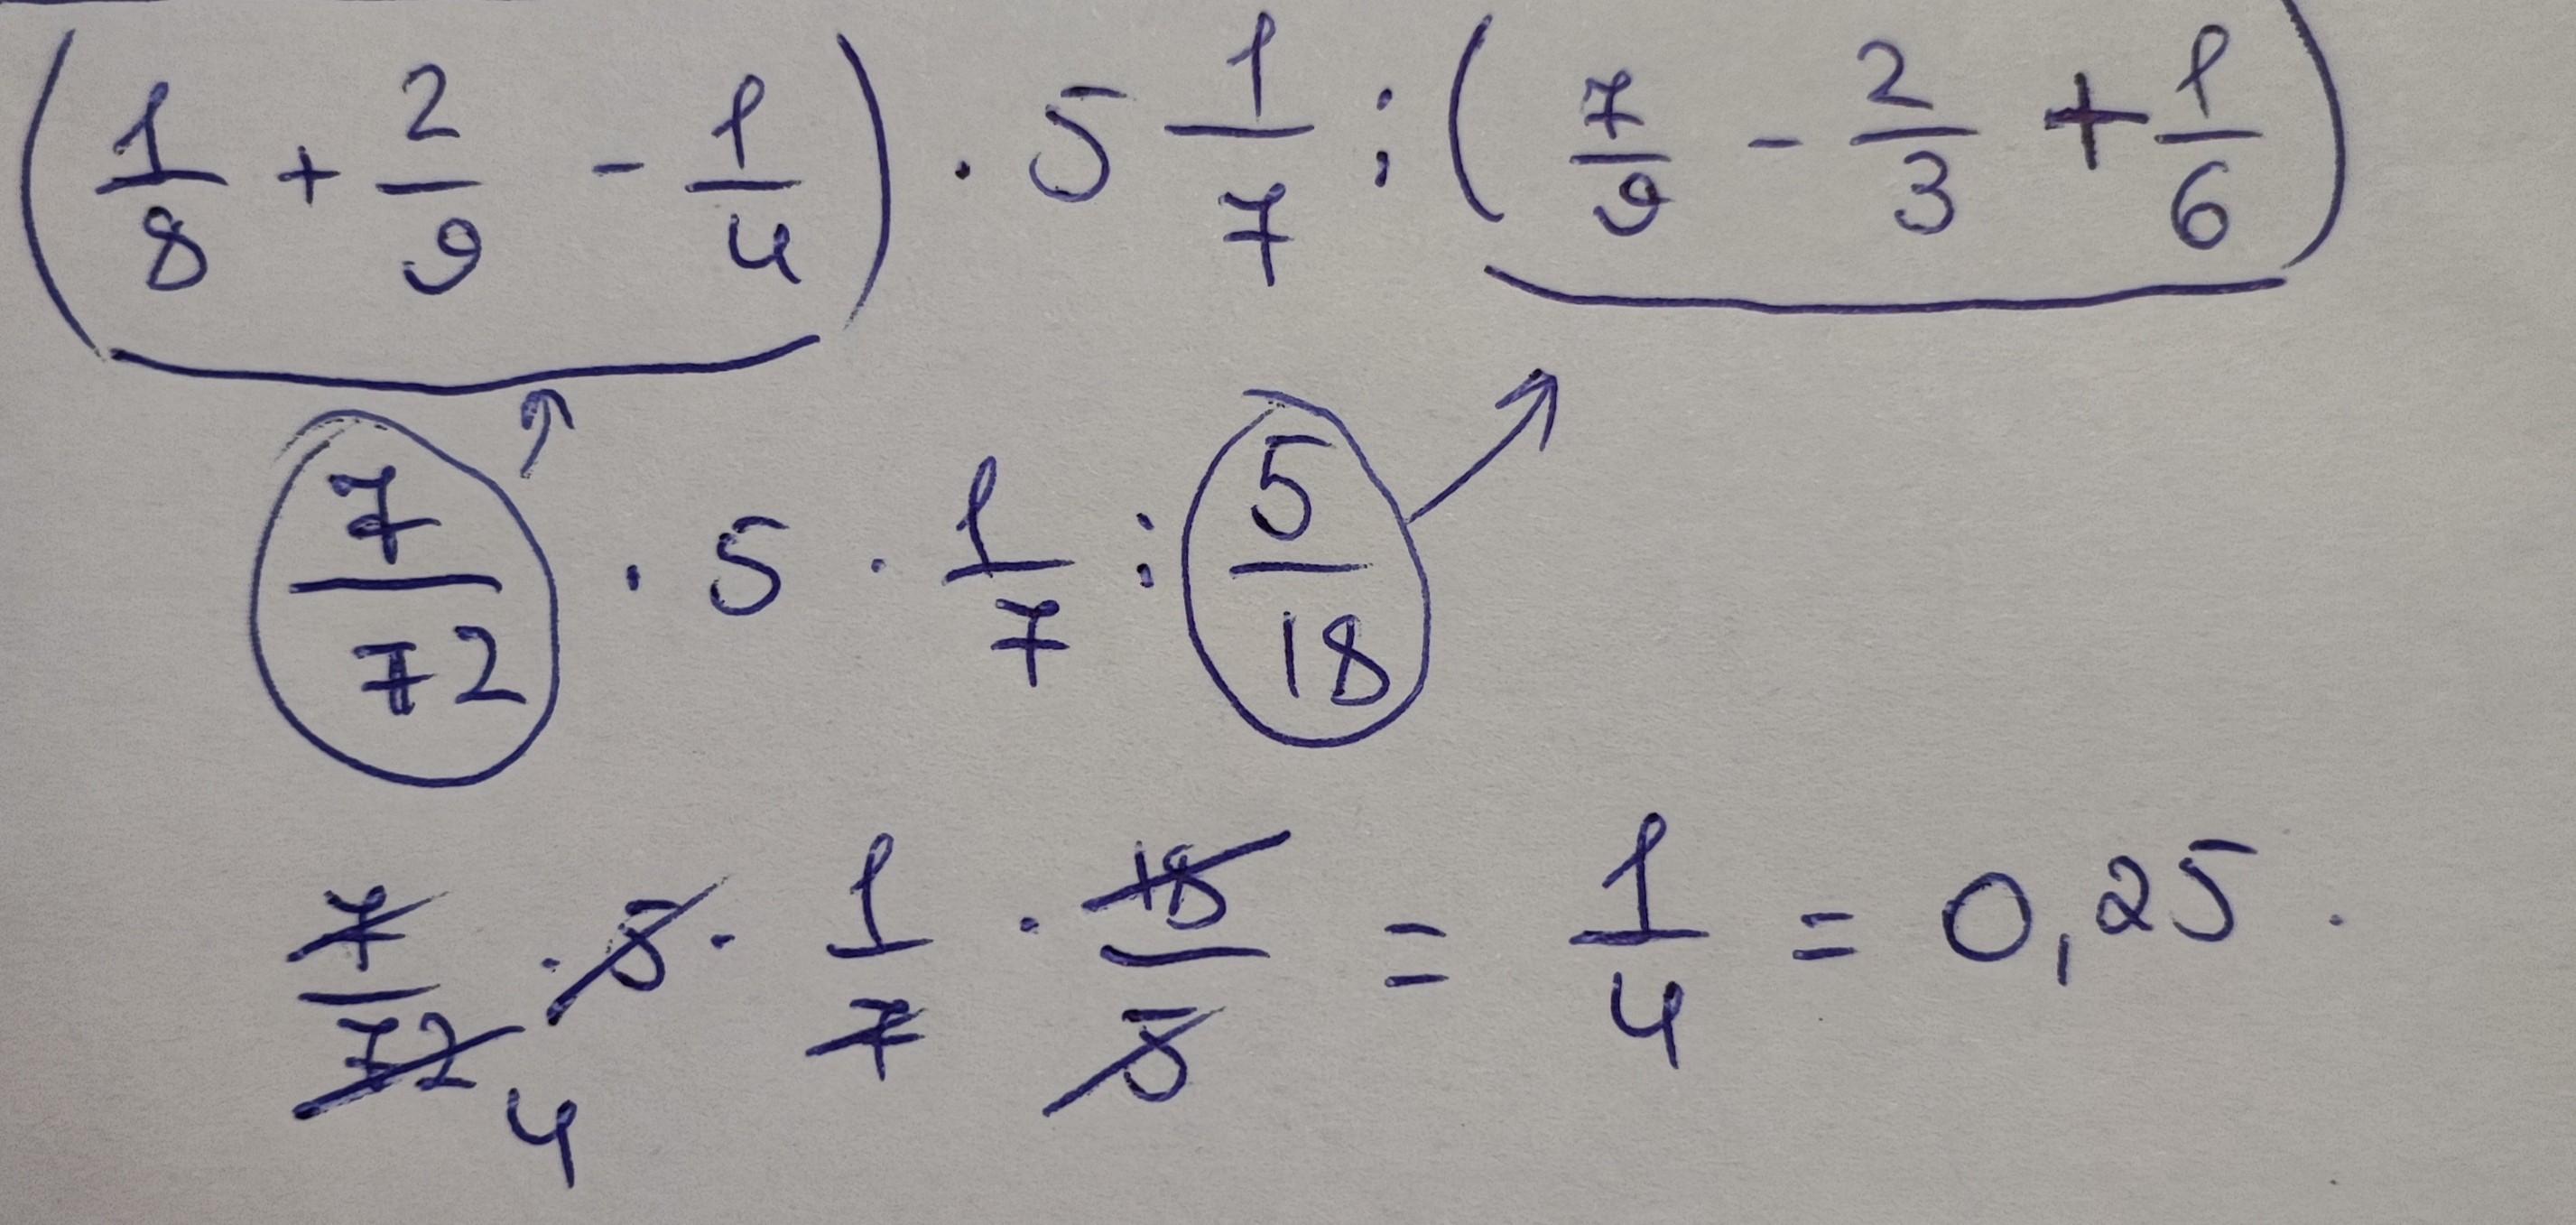 (1/8 + 2/9 - 1/4) · 5 1/7 : (7/9 - 2/3 + 1/6)
7/72 · 5 · 1/7 : 5/18
7/72 4 · 5 · 1/7 · 18/5 = 1/4 = 0,25.